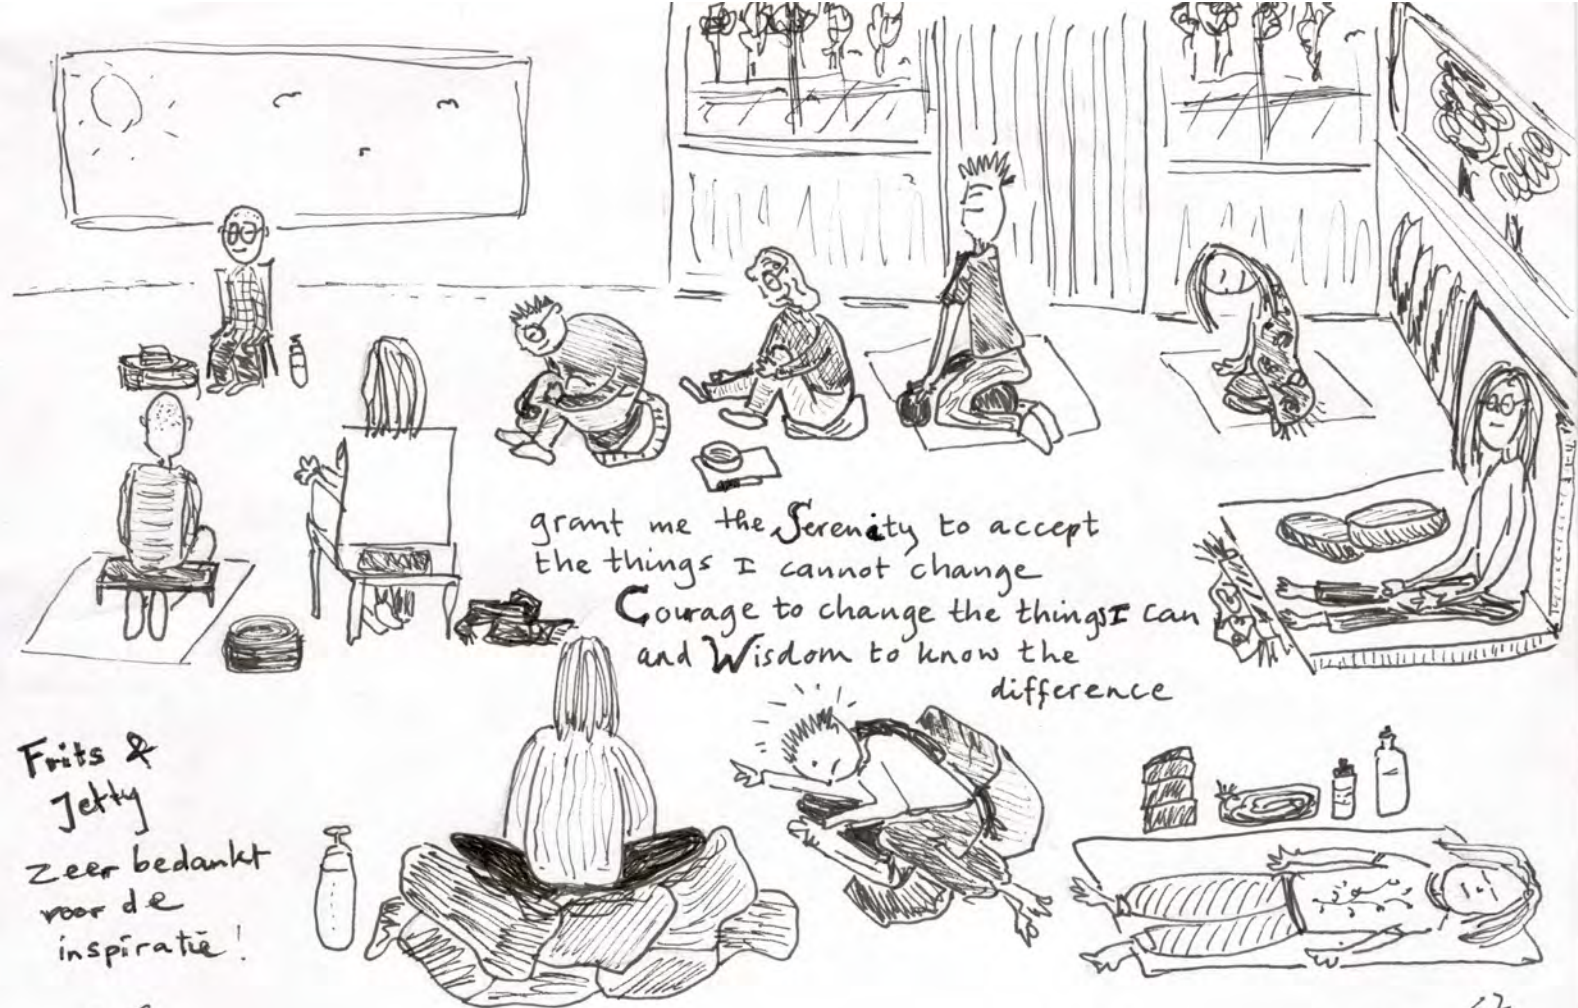 grant me the Serenity to accept
the things I cannot change
Courage to change the things I can
and Wisdom to know the
difference
Frits &
Jetty
zeer bedankt
voor de
inspiratie!